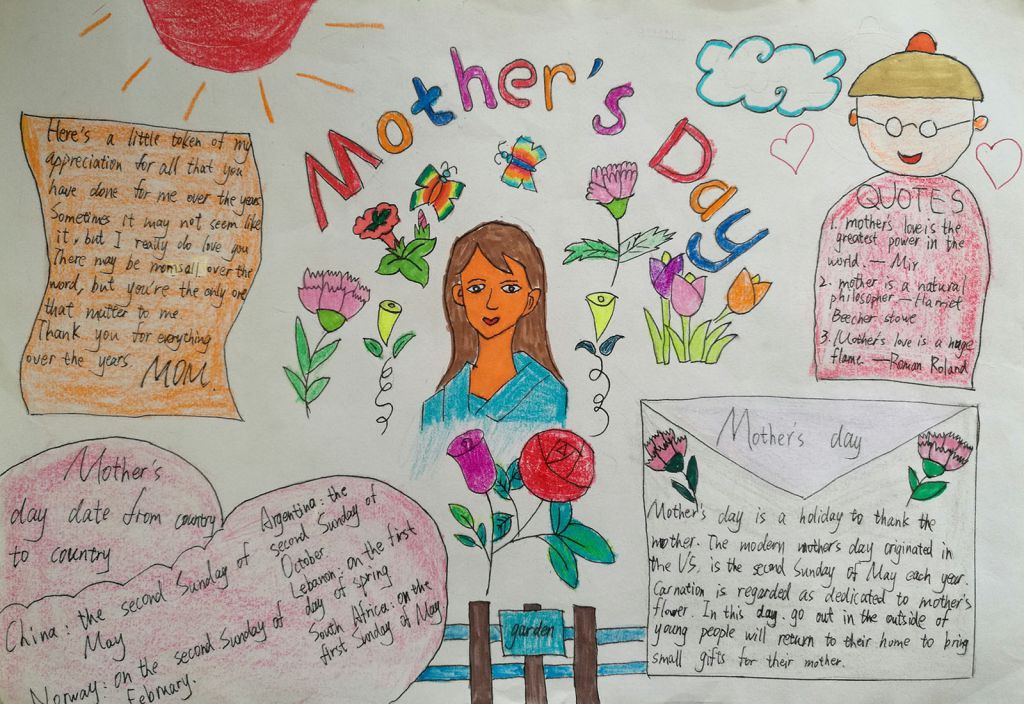 Mother's Day
Here's a little token of my
appreciation for all that you
have done for me over the years
Sometimes it may not seem like
it, but I really do love you
There may be momsall over the
word, but you're the only one
that matter to me.
Thank you for everything
over the years.
MOM.
QUOTES
1. mothers love is the
greatest power in the
world. — Mir
2. mother is a natural
philosopher. — Harriet
Beecher stowe
3. Mother's love is a huge
flame. — Roman Roland
Mother's
day date from country
to country
China: the second Sunday of
May
Norway: on the second Sunday of
February.
Argentina: the
second Sunday of
October
Lebanon: on the first
day of spring
South Africa: on the
first Sunday of May
garden
Mother's day
Mother's day is a holiday to thank the
mother. The modern mother's day originated in
the U.S. is the second Sunday of May each year.
Carnation is regarded as dedicated to mother's
flower. In this day. go out in the outside of
young people will return to their home to bring
small gifts for their mother.